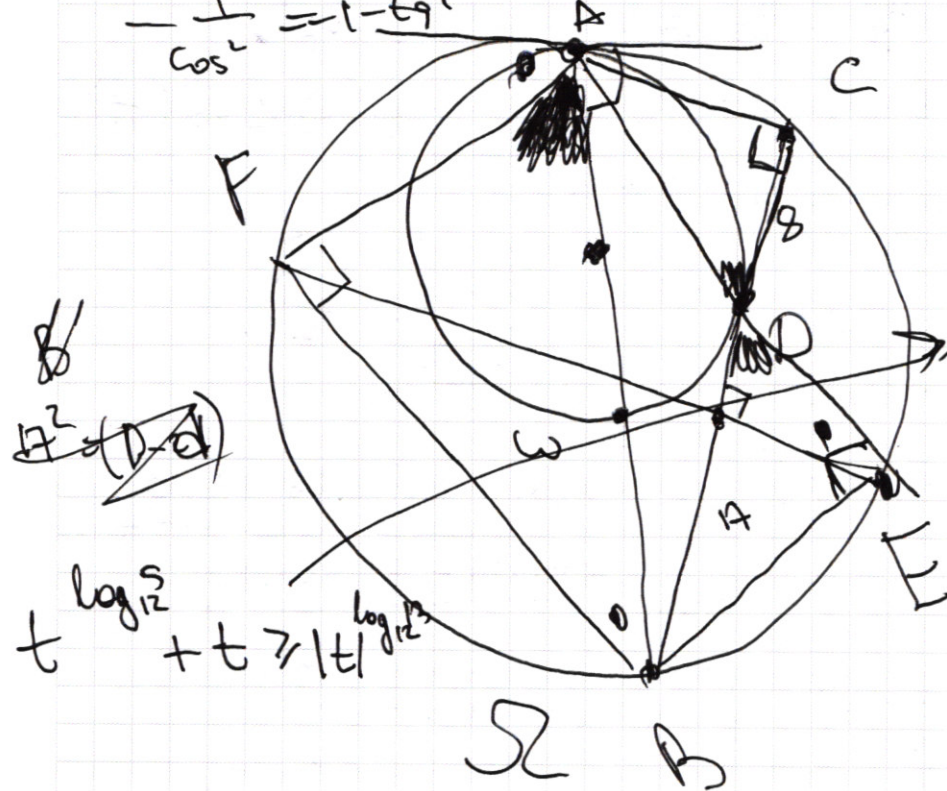 - 1/cos² = -1 - tg²
A
C
F
8
D
17² = (D-d)
ω
17
E
t^log₁₂5 + t ≥ |t|^log₁₂13
Ω
B